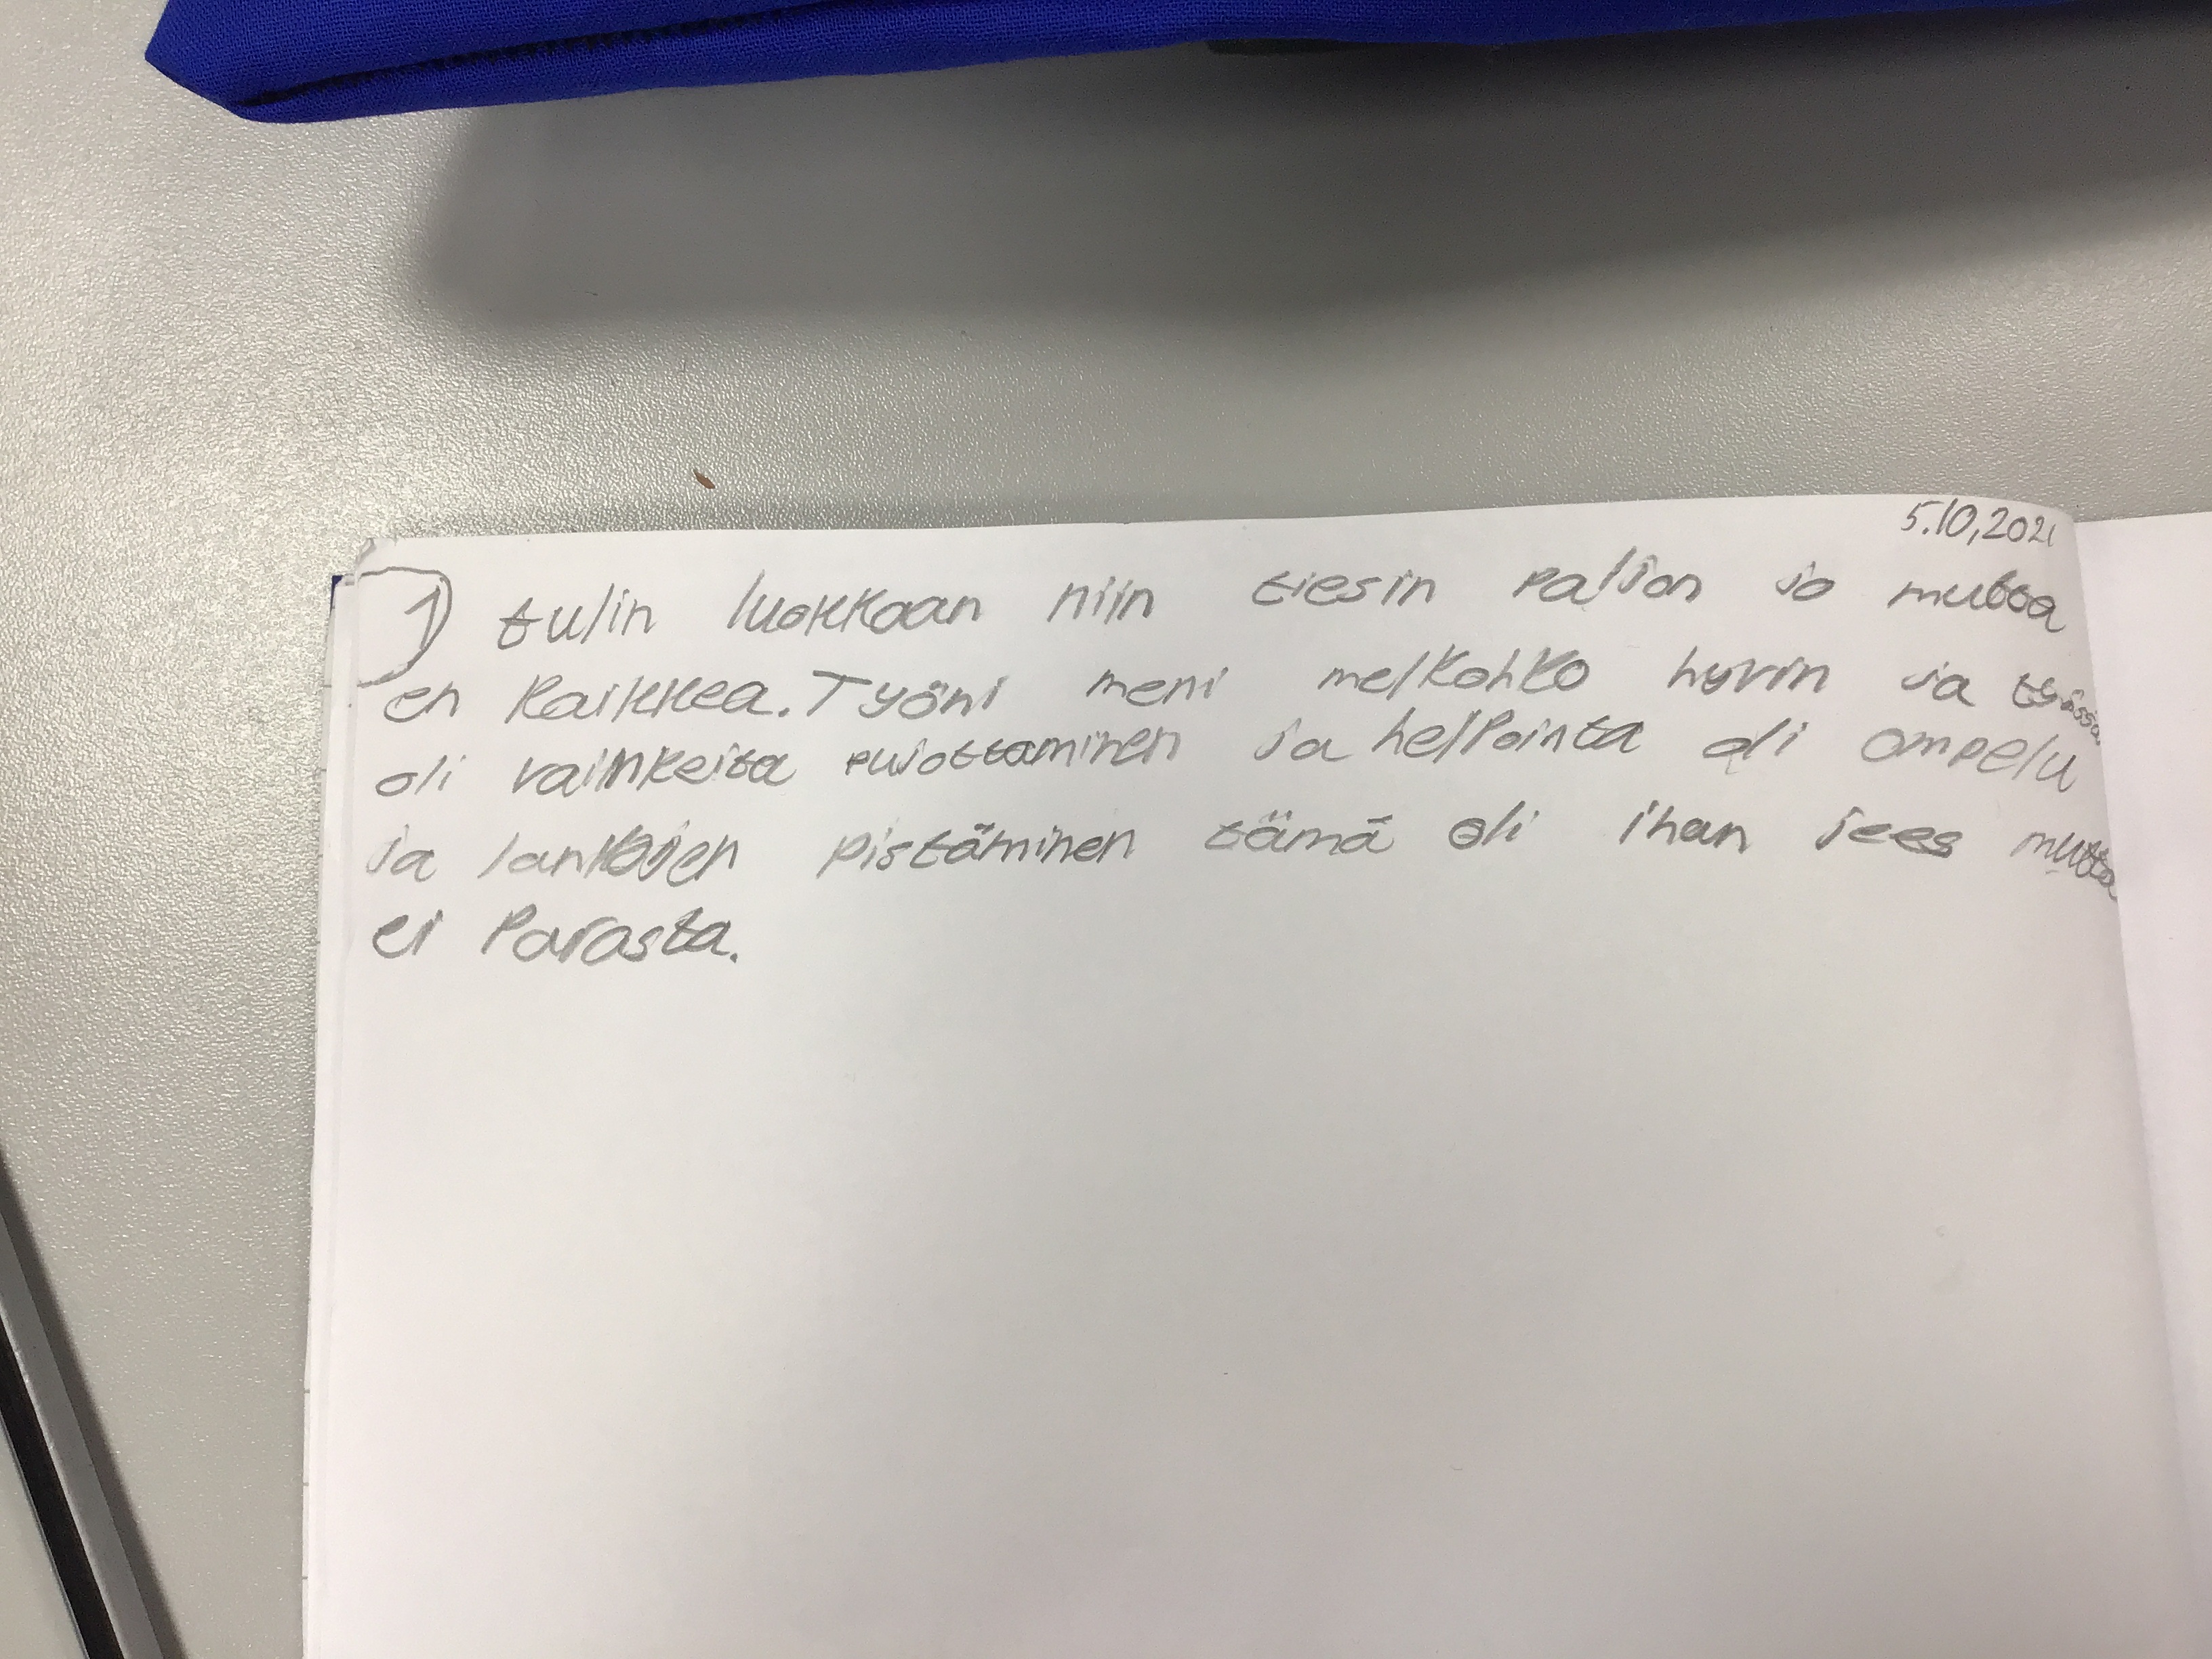 5.10,2021
1) tulin luokkaan niin tiesin paljon jo mutta
en kaikkea. Työni meni melkohko hyvin ja työssä
oli vainkeita pujottaminen ja helpointa oli ompelu
ja lankojen pistäminen tämä oli ihan jees mutta
ei parasta.